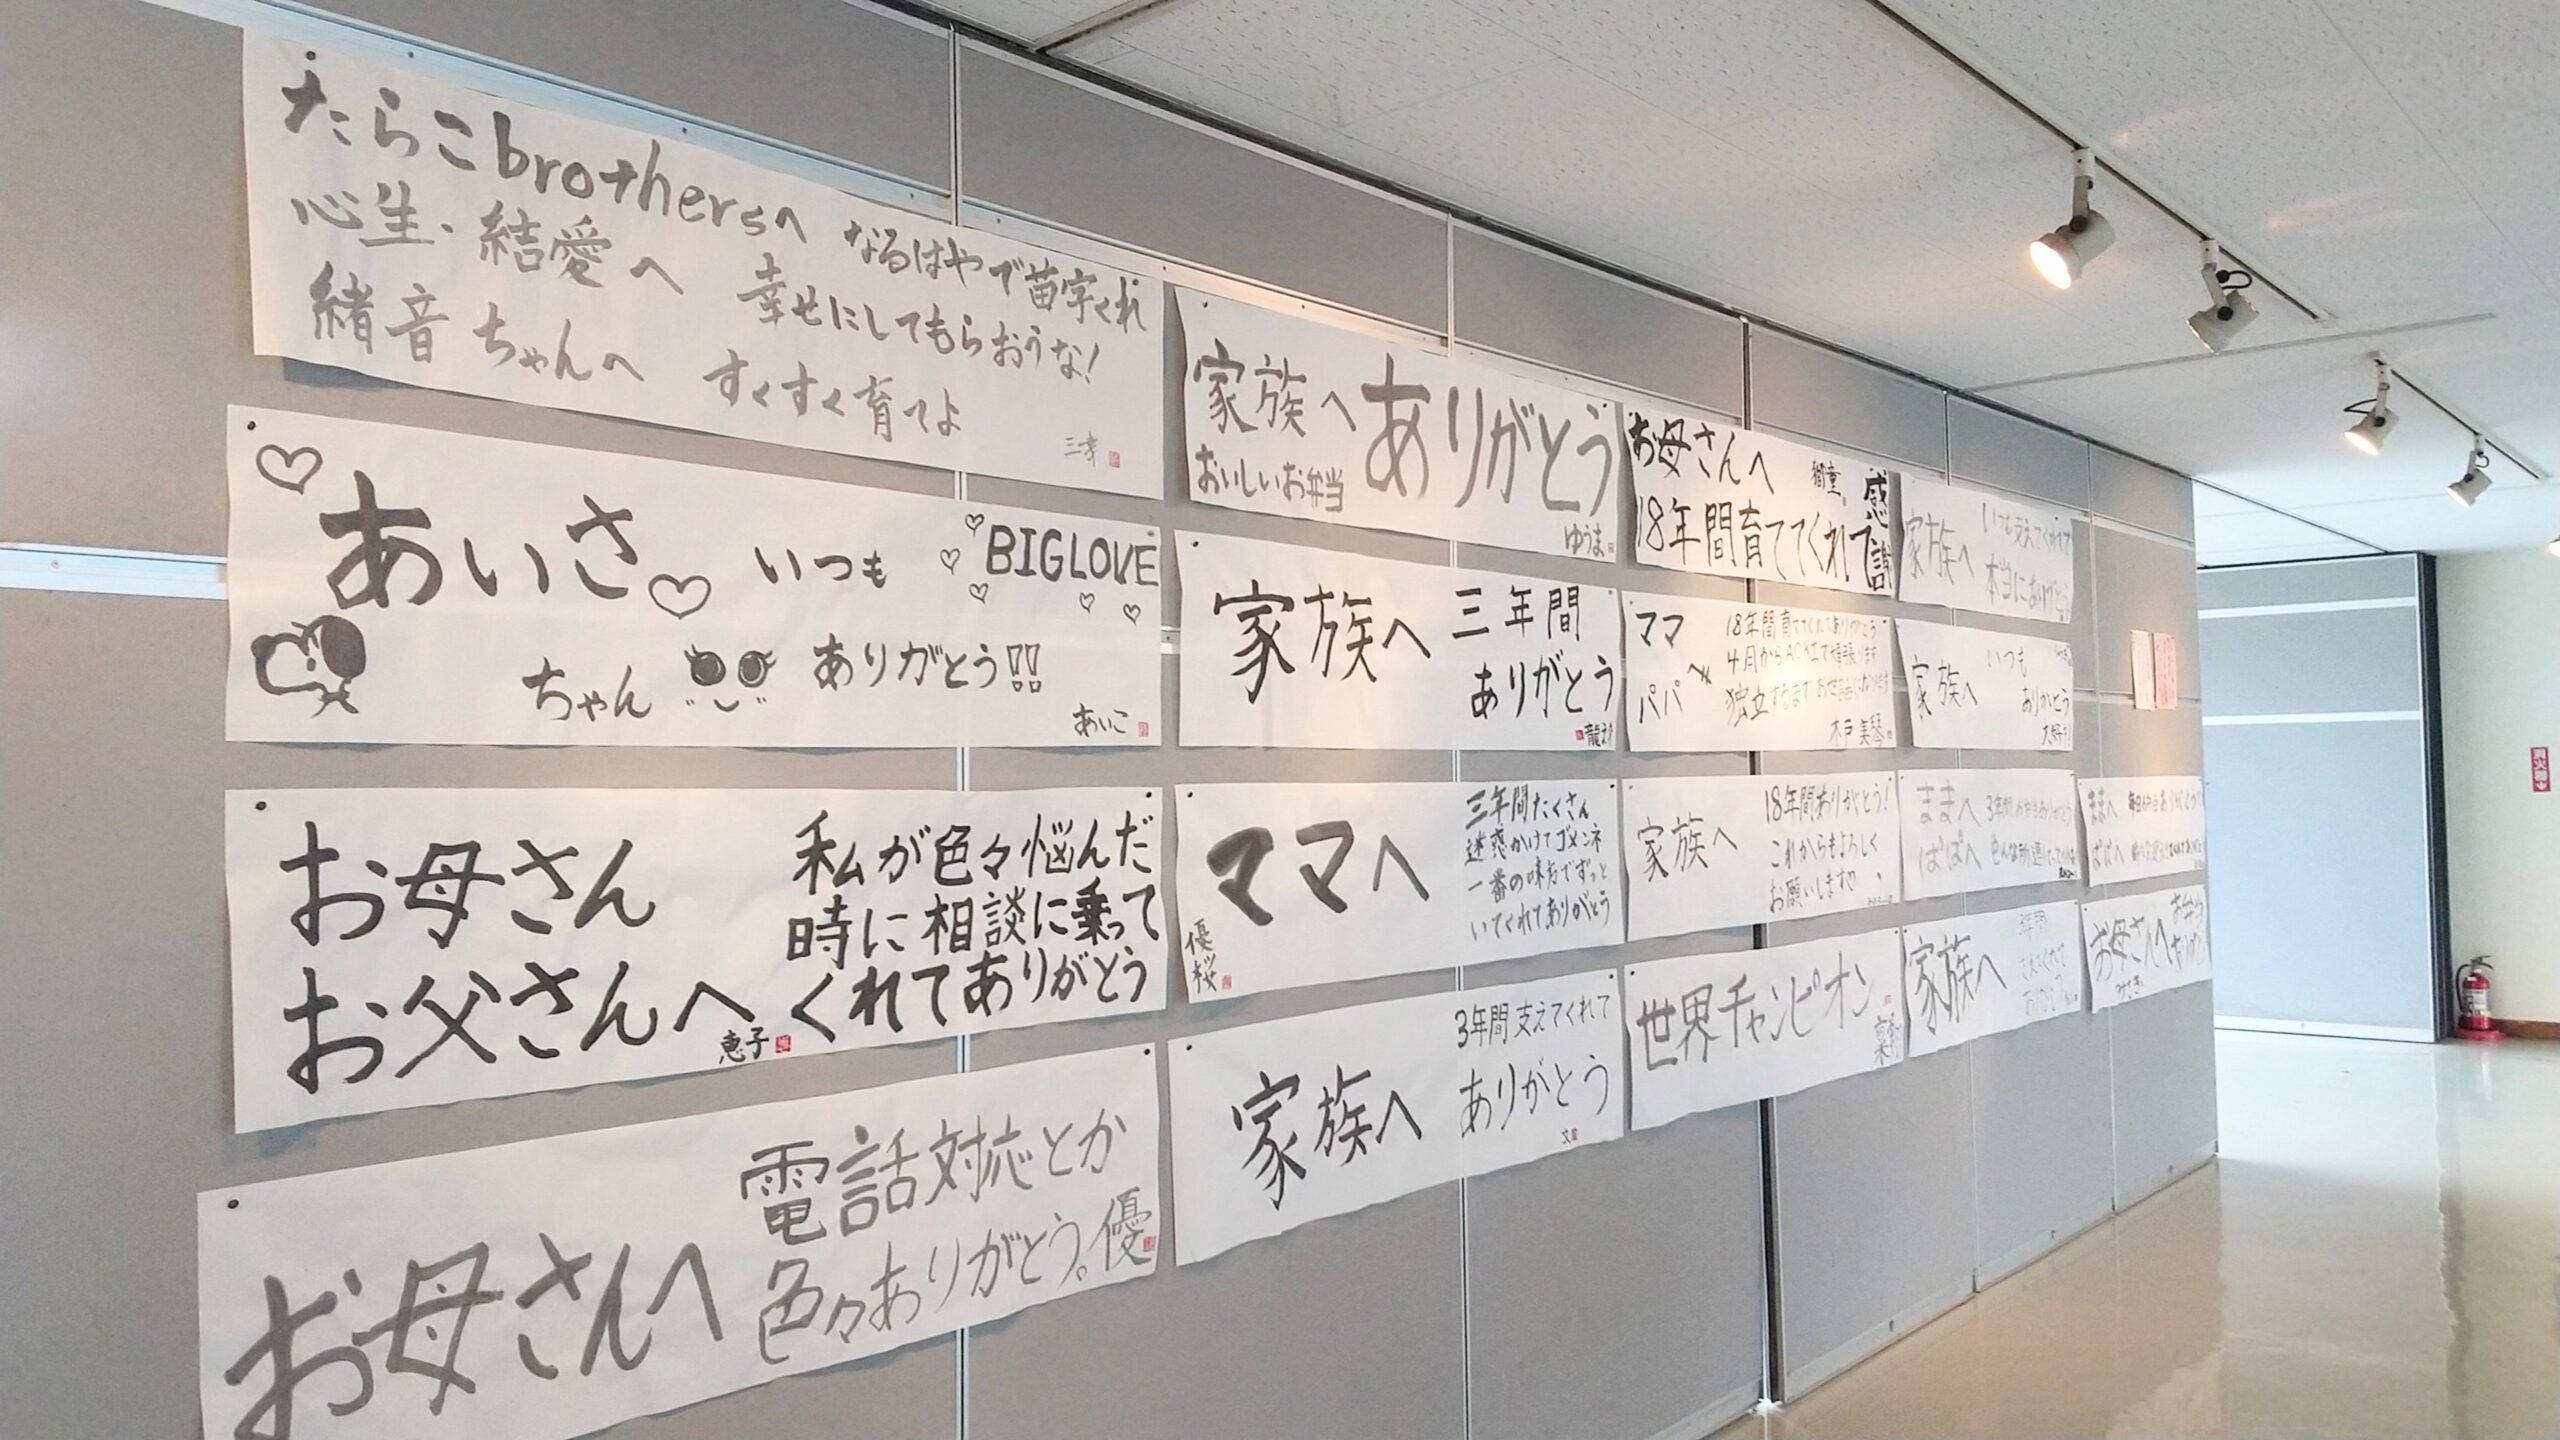 たらこbrothersへ なるはやで苗字くれ
心生・結愛へ 幸せにしてもらおうな!
緒音ちゃんへ すくすく育てよ
あいさ
ちゃん
いつも
ありがとう!!
BIGLOVE
あいこ
お母さん
お父さんへ
私が色々悩んだ
時に相談に乗って
くれてありがとう
恵子
お母さんへ
電話対応とか
色々ありがとう。優
家族へ
おいしいお弁当
ありがとう
ゆうま
家族へ
三年間
ありがとう
ママへ
三年間たくさん
迷惑かけてゴメンネ
一番の味方でずっと
いてくれてありがとう
優桜
家族へ
3年間支えてくれて
ありがとう
文
お母さんへ
18年間育ててくれて
感謝
ママ
パパへ
18年間育ててくれてありがとう
4月から
独立するまで
木戸美琴
家族へ
18年間ありがとう!
これからもよろしく
お願いします♡
世界チャンピオン
家族へ
いつも支えてくれて
本当にありがとう
家族へ
いつも
ありがとう
大好き!
ままへ
ぱぱへ
3年間お弁当ありがとう
家族へ
3年間
ありがとう
ままへ
ぱぱへ
お母さんへ
お弁当
みさき
消火器